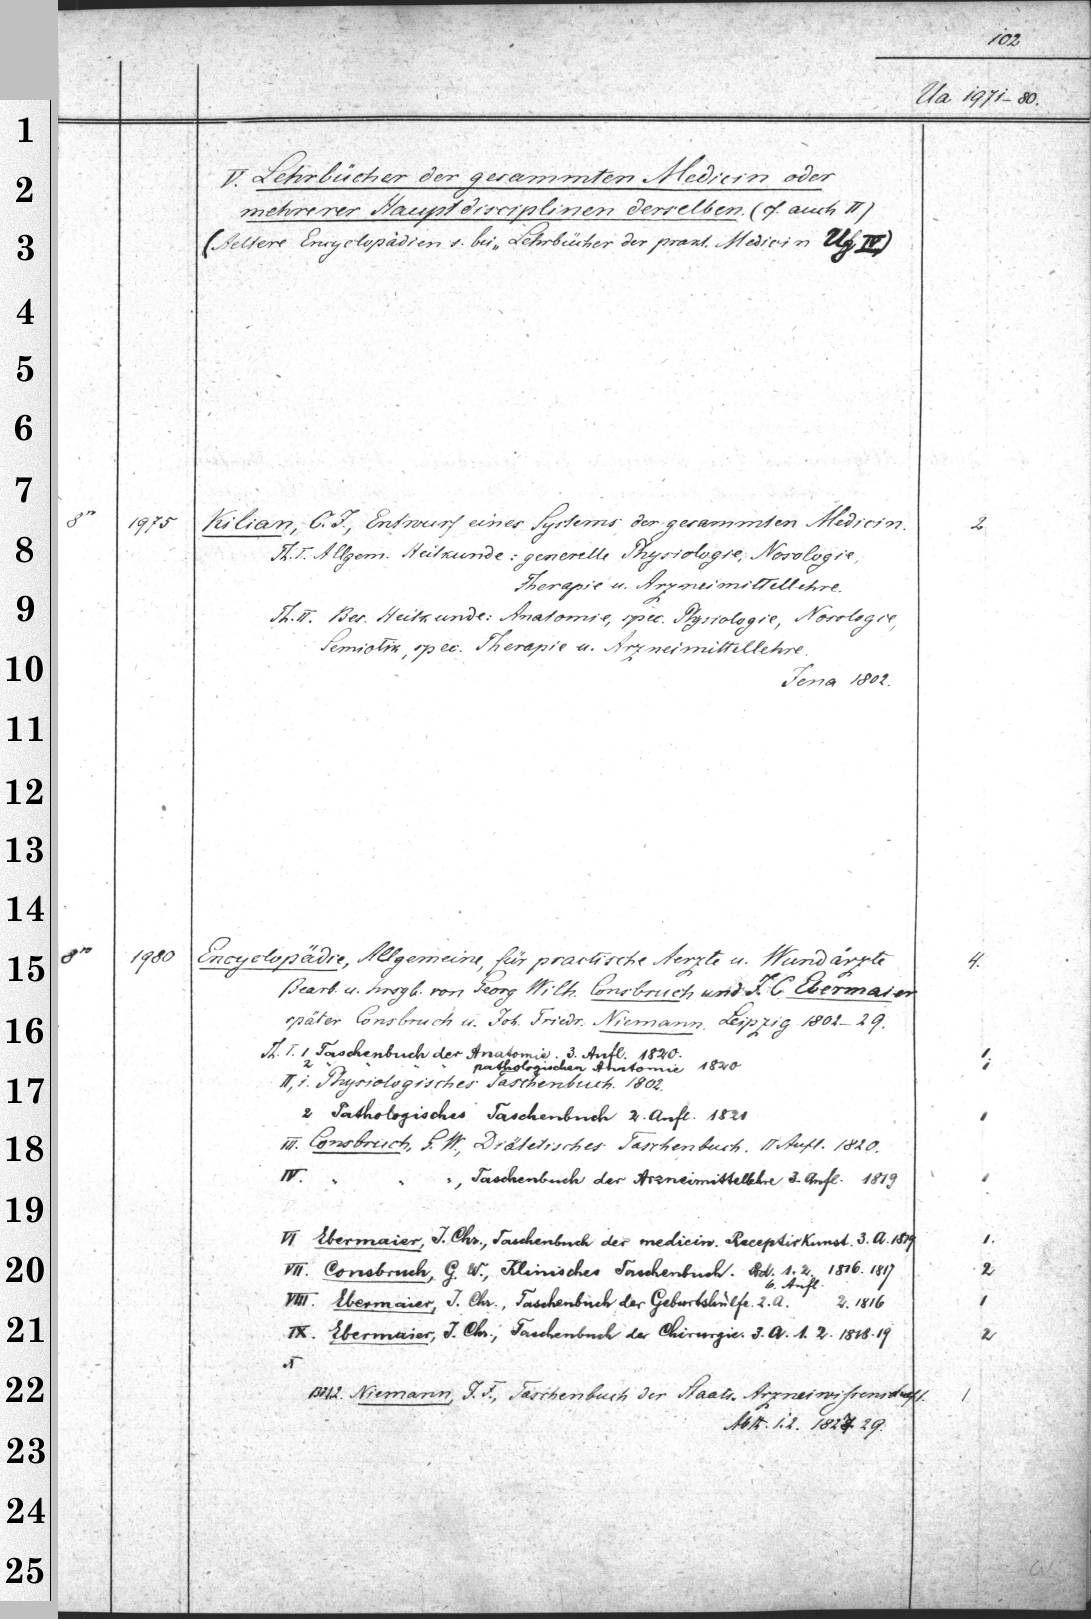 102
Ua 1971-80.
V. Lehrbücher der gesammten Medicin oder
mehrerer Hauptdisciplinen derselben. (cf. auch II)
(Aeltere Encyclopädien s. bei „Lehrbücher der prakt. Medicin Uf IV)
8vo 1975 Kilian, C. J., Entwurf eines Systems der gesammten Medicin. 2
Th. I. Allgem. Heilkunde: generelle Physiologie, Nosologie,
Therapie u. Arzneimittellehre.
Th. II. Bes. Heilkunde: Anatomie, spec. Physiologie, Nosologie,
Semiotik, spec. Therapie u. Arzneimittellehre.
Jena 1802.
8vo 1980 Encyclopädie, Allgemeine, für practische Aerzte u. Wundärzte 4.
Bearb. u. hrsgb. von Georg Wilh. Consbruch und J. C Ebermaier
später Consbruch u. Joh. Friedr. Niemann. Leipzig 1802-29.
Th. I. 1 Taschenbuch der Anatomie. 3. Aufl. 1820. 1
2 " " " pathologischen Anatomie 1820 1
II, 1. Physiologisches Taschenbuch. 1802.
2 Pathologisches Taschenbuch 2. Aufl. 1821 1
III. Consbruch, G. W., Diätetisches Taschenbuch. II Aufl. 1820.
IV. " " ", Taschenbuch der Arzneimittellehre 3. Aufl. 1819 1
VI Ebermaier, J. Chr., Taschenbuch der medicin. Receptirkunst. 3. A. 1819 1.
VII. Consbruch, G. W., Klinisches Taschenbuch. Bd. 1. 2. 1816. 1817 2
6. Aufl.
VIII. Ebermaier, J. Chr., Taschenbuch der Geburtshülfe. 2. A. 2. 1816 1
IX. Ebermaier, J. Chr., Taschenbuch der Chirurgie. 3. A. 1. 2. 1818-19 2
X
Bd 1.2. Niemann, J. F., Taschenbuch der Staats-Arzneiwissenschaft. 1
Abth. 1. 2. 1827. 29.
1
2
3
4
5
6
7
8
9
10
11
12
13
14
15
16
17
18
19
20
21
22
23
24
25